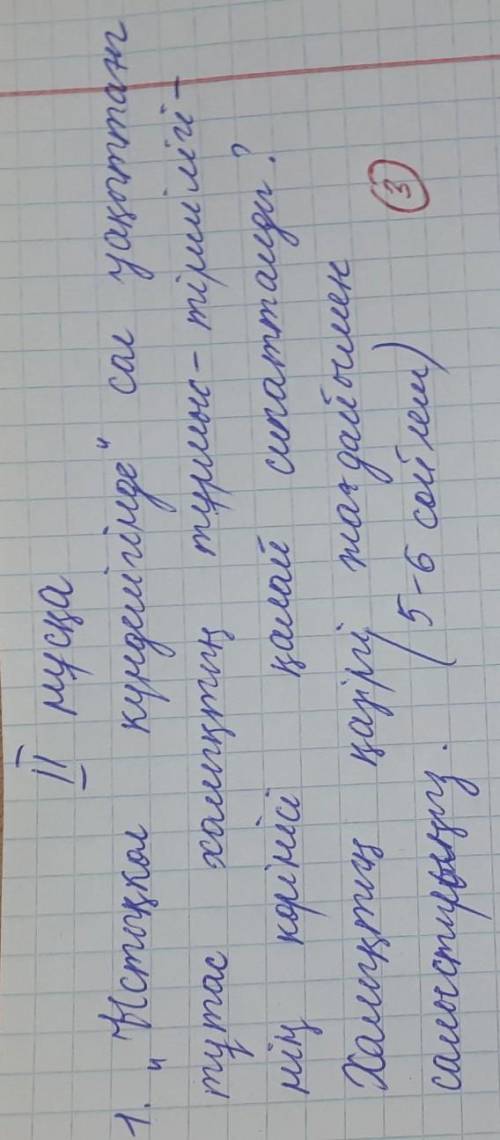 II нұсқа
1. „Ыстықкөл күнделігінде" сол уақыттағы
тұтас халықтың тұрмыс-тіршілігі-
нің көрінісі қалай сипатталды?
Халықтың қазіргі жағдайымен
салыстырыңыз. (5-6 сөйлем) 3